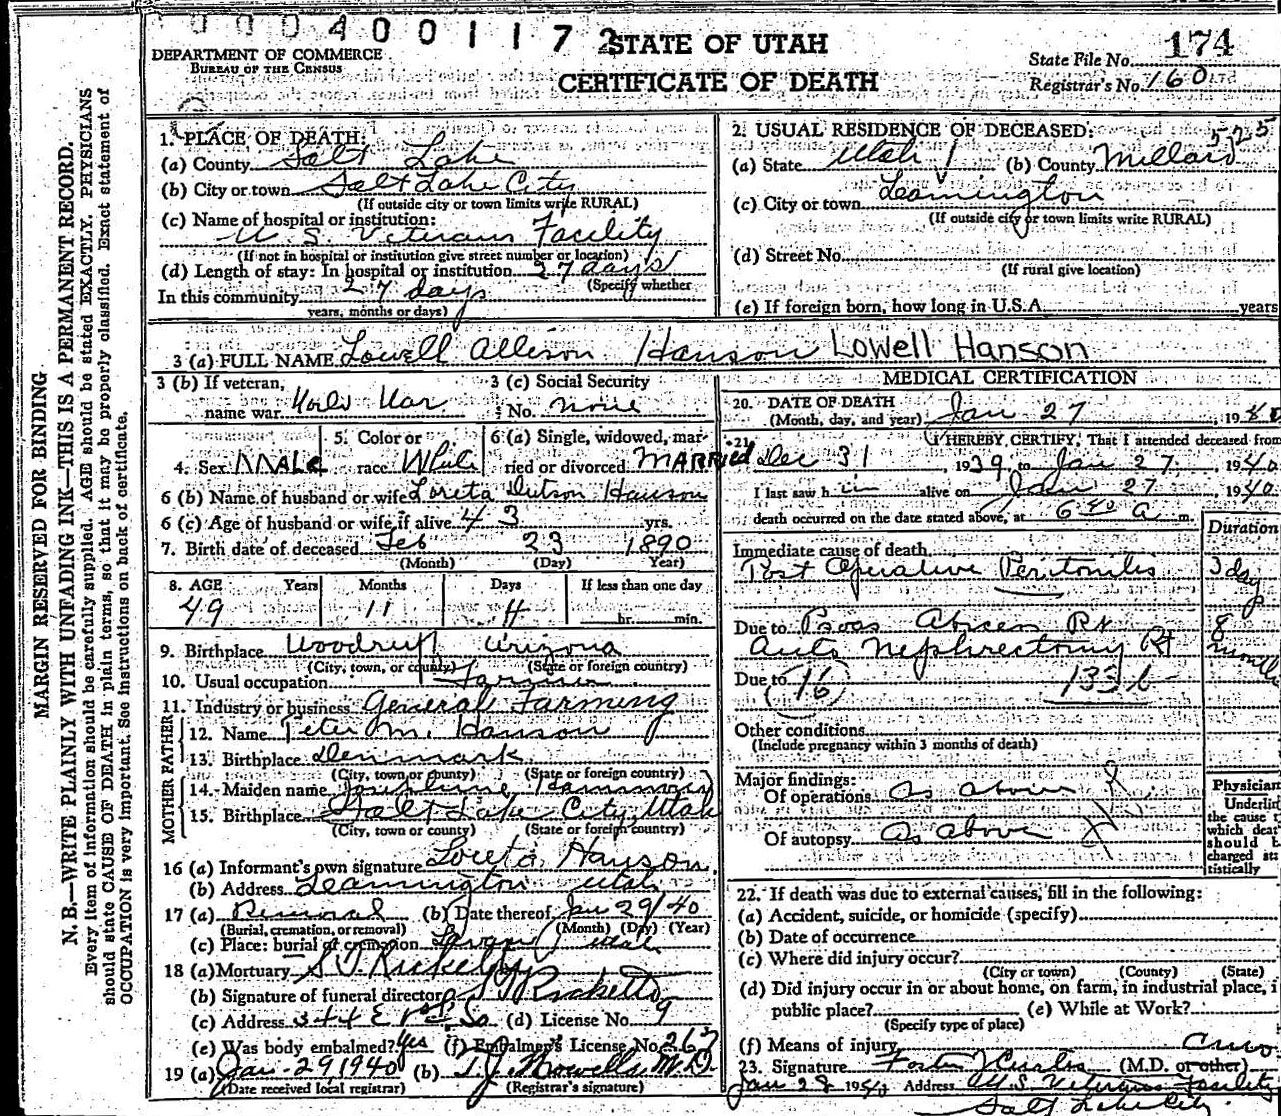 0 0 0 4 0 0 1 1 7 2
STATE OF UTAH
CERTIFICATE OF DEATH
DEPARTMENT OF COMMERCE
BUREAU OF THE CENSUS
State File No. 174
Registrar's No. 160
MARGIN RESERVED FOR BINDING
N. B.—WRITE PLAINLY WITH UNFADING INK—THIS IS A PERMANENT RECORD.
Every item of information should be carefully supplied. AGE should be stated EXACTLY. PHYSICIANS
should state CAUSE OF DEATH in plain terms, so that it may be properly classified. Exact statement of
OCCUPATION is very important. See instructions on back of certificate.
1. PLACE OF DEATH:
(a) County Salt Lake
(b) City or town Salt Lake City
(If outside city or town limits write RURAL)
(c) Name of hospital or institution:
U. S. Veterans Facility
(If not in hospital or institution give street number or location)
(d) Length of stay: In hospital or institution 27 days
(Specify whether
In this community 27 days
years, months or days)
2. USUAL RESIDENCE OF DECEASED: 525
(a) State Utah (b) County Millard
(c) City or town Leamington
(If outside city or town limits write RURAL)
(d) Street No.
(If rural give location)
(e) If foreign born, how long in U.S.A. years
3 (a) FULL NAME Lowell Allison Hanson Lowell Hanson
3 (b) If veteran, name war World War
3 (c) Social Security No. none
4. Sex MALE
5. Color or race White
6 (a) Single, widowed, married or divorced MARRIED
6 (b) Name of husband or wife Loreta Dutson Hanson
6 (c) Age of husband or wife, if alive 43 yrs.
7. Birth date of deceased Feb 23 1890
(Month) (Day) (Year)
8. AGE Years Months Days If less than one day
49 11 4 hr. min.
9. Birthplace Woodruff Arizona
(City, town, or county) (State or foreign country)
10. Usual occupation Farmer
11. Industry or business General Farming
FATHER
12. Name Peter M. Hanson
13. Birthplace Denmark
(City, town or county) (State or foreign country)
MOTHER
14. Maiden name Josephine
15. Birthplace Salt Lake City, Utah
(City, town or county) (State or foreign country)
16 (a) Informant's own signature Loreta Hanson
(b) Address Leamington Utah
17 (a) Removal (b) Date thereof Jan 29/40
(Burial, cremation, or removal) (Month) (Day) (Year)
(c) Place: burial or cremation Levan, Utah
18 (a) Mortuary S. T. Ricketts
(b) Signature of funeral director S T Ricketts
(c) Address 344 E 1st So (d) License No. 9
(e) Was body embalmed? Yes (f) Embalmer's License No. 263
19 (a) Jan. 29 1940 (b) T. J. Howells M.D.
(Date received local registrar) (Registrar's signature)
MEDICAL CERTIFICATION
20. DATE OF DEATH
(Month, day, and year) Jan 27, 1940
21. I HEREBY CERTIFY, That I attended deceased from
Dec 31, 1939, to Jan 27, 1940
I last saw him alive on Jan 27, 1940
death occurred on the date stated above, at 6 40 a m.
Duration
Immediate cause of death
Post Operative Peritonitis 3 days
Due to Psoas Abscess Rt 8 months
Nephrectomy Rt
Due to (16) 133 b
Other conditions
(Include pregnancy within 3 months of death)
Major findings:
Of operations As above
Of autopsy As above
Physician
Underline
the cause t
which deat
should b
charged sta
tistically
22. If death was due to external causes, fill in the following:
(a) Accident, suicide, or homicide (specify)
(b) Date of occurrence
(c) Where did injury occur?
(City or town) (County) (State)
(d) Did injury occur in or about home, on farm, in industrial place, i
public place? (e) While at Work?
(Specify type of place)
(f) Means of injury
23. Signature Foster J Curtis (M.D. or other)
Jan 28 1940 Address U.S. Veterans Facility
Salt Lake City.